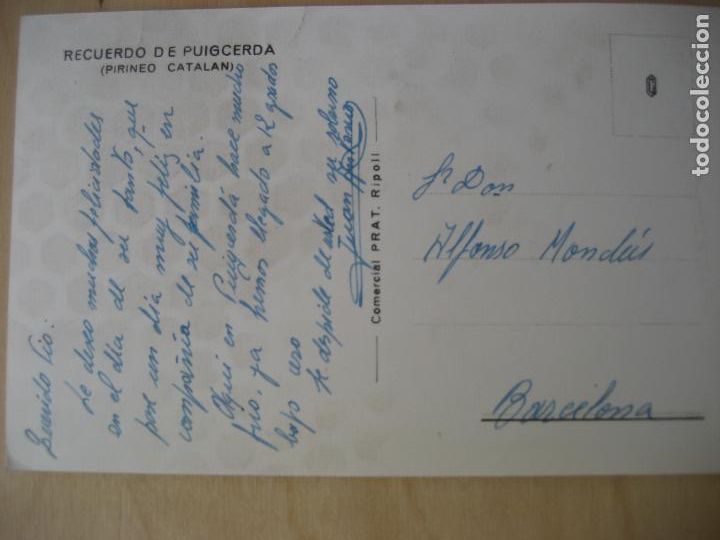 RECUERDO DE PUIGCERDA
(PIRINEO CATALAN)
Querido Tio:
Le deseo muchas felicidades
en el dia de su santo, que
pase un dia muy feliz en
compañia de su familia.
Aqui en Puigcerdá hace mucho
frio, ya hemos llegado a 12 grados
bajo cero
Se despide de usted su sobrino
Juan Antonio
Comercial PRAT. Ripoll
Sr Don
Alfonso Mondéis
Barcelona
todocoleccion.net